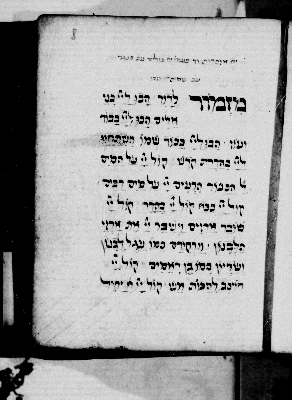 מזמור לדוד הבו ליי בני
אלים הבו ליי כבוד
ועוז הבו ליי כבוד שמו השתחוו
ליי בהדרת קדש קול יי על המים
אל הכבוד הרעים יי על מים רבים
קול יי בכח קול יי בהדר קול יי
שובר ארזים וישבר יי את ארזי
הלבנון וירקידם כמו עגל לבנון
ושריון כמו בן ראמים קול יי
חוצב להבות אש קול יי יחיל